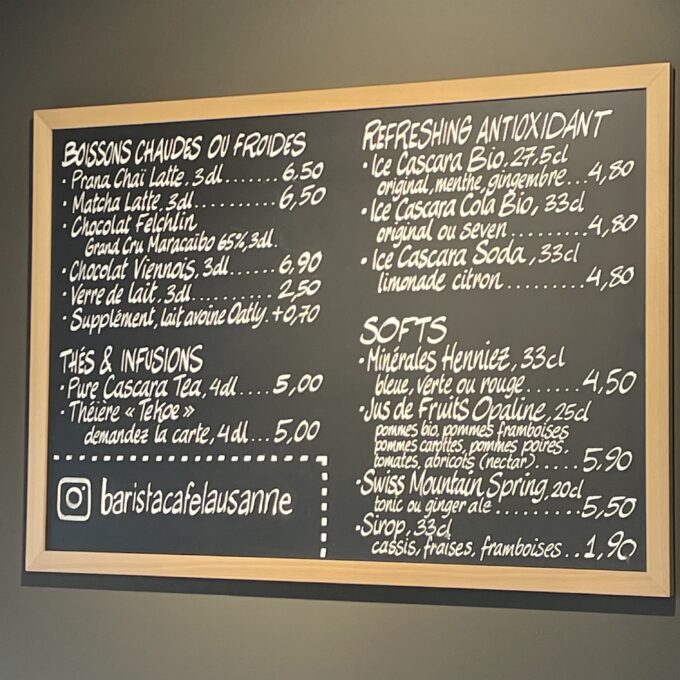 BOISSONS CHAUDES OU FROIDES
· Prana Chaï Latte, 3dl........ 6,50
· Matcha Latte, 3dl............ 6,50
· Chocolat Felchlin
Grand Cru Maracaibo 65%, 3dl.
· Chocolat Viennois, 3dl...... 6,90
· Verre de lait, 3dl............ 2,50
· Supplément, lait avoine Oatly. +0,70
THÉS & INFUSIONS
· Pure Cascara Tea, 4dl.....5,00
· Théière « Tekoe »
demandez la carte, 4dl...5,00
baristacafelausanne
REFRESHING ANTIOXIDANT
· Ice Cascara Bio, 27,5cl
original, menthe, gingembre...4,80
· Ice Cascara Cola Bio, 33cl
original ou seven..........4,80
· Ice Cascara Soda, 33cl
limonade citron............4,80
SOFTS
· Minérales Henniez, 33cl
bleue, verte ou rouge.......4,50
· Jus de Fruits Opaline, 25cl
pommes bio, pommes framboises
pommes carottes, pommes poires,
tomates, abricots (nectar)......5,90
· Swiss Mountain Spring, 20cl
tonic ou ginger ale..........5,50
· Sirop, 33cl
cassis, fraises, framboises...1,90